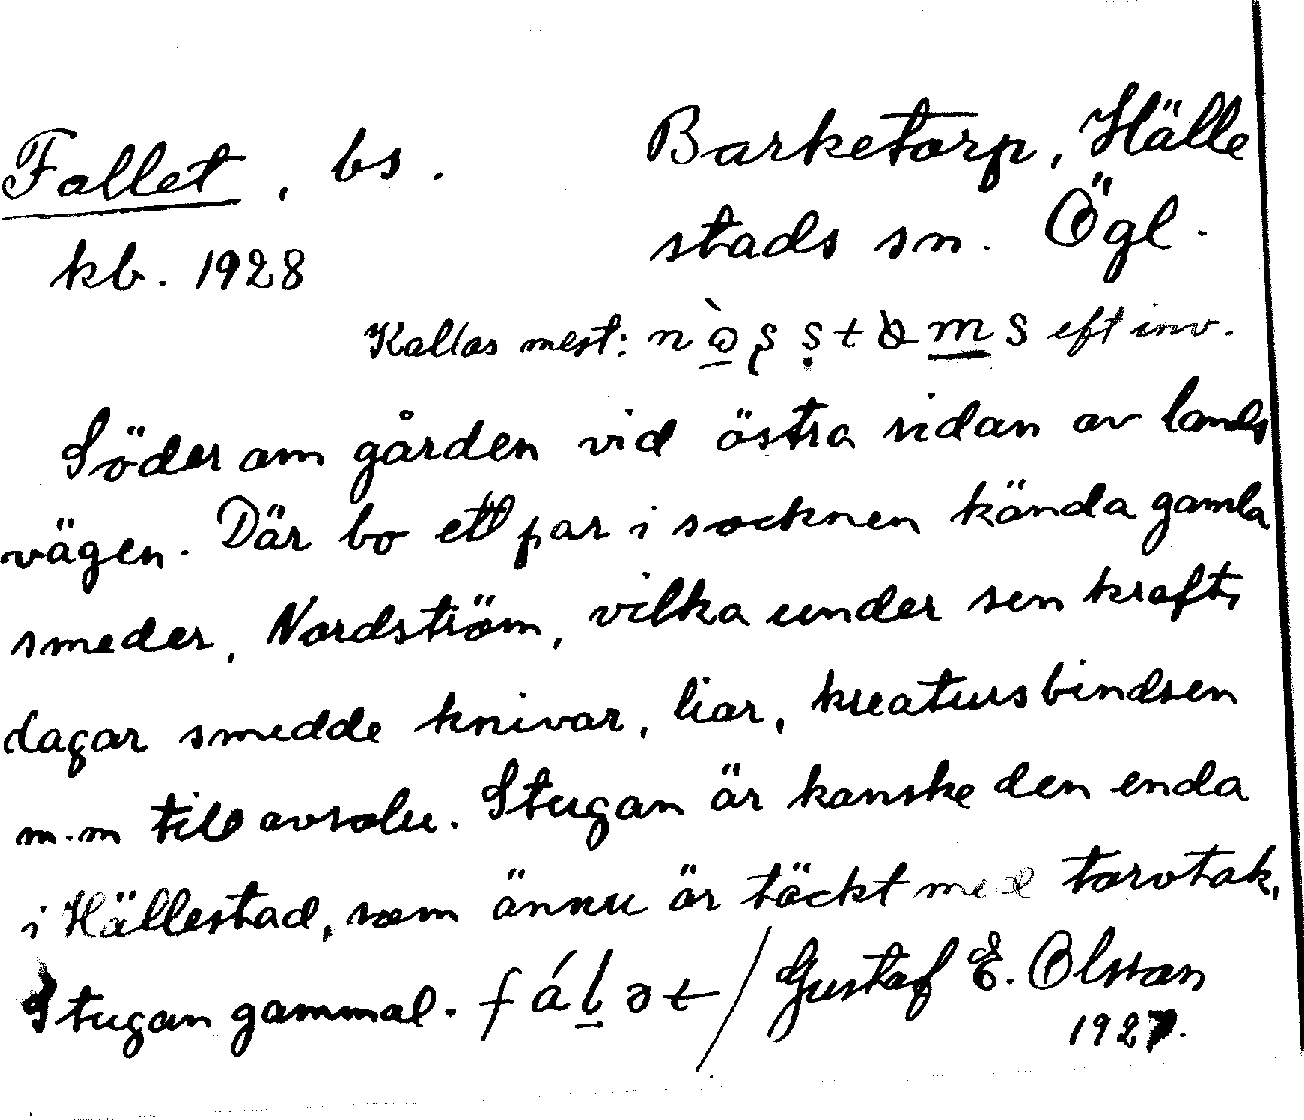 Fallet, bs. Barketorp, Hälle
kb. 1928 stads sn. Ögl.
Kallas mest: eft inv.
Söder om gården vid östra sidan av lands
vägen. Där bo ett par i socknen kända gamla
smeder, Nordström, vilka under sen krafts
dagar smidde knivar, liar, kreatursbindsen
m.m till avsalu. Stugan är kanske den enda
i Hällestad, som ännu är täckt med torvtak.
Stugan gammal. fáḻət / Gustaf E. Olsson
1927.